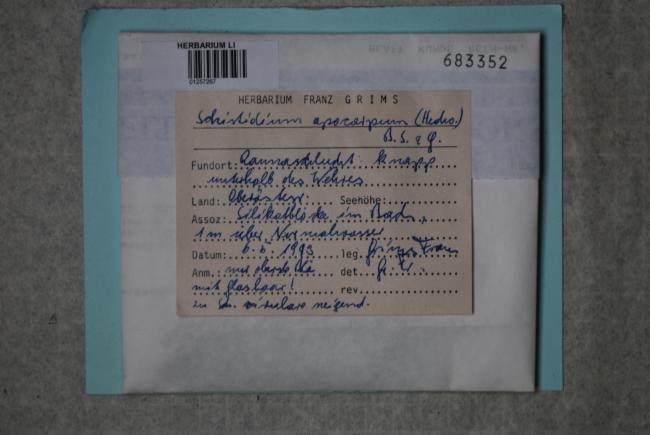 HERBARIUM LI
01257267
683352
HERBARIUM FRANZ GRIMS
Schistidium apocarpum (Hedw.)
B. S. & G.
Fundort: Rannaschlucht: knapp
unterhalb des Wehres
Land: Oberösterr. Seehöhe:
Assoz: Silikatblöcke im Bach,
1m über Normalwasser
Datum: 6. 6. 1993 leg. Grims Franz
Anm.: nur oberste Blä det. Gr. F.
mit Glashaar! rev.
zu Sch. neigend.